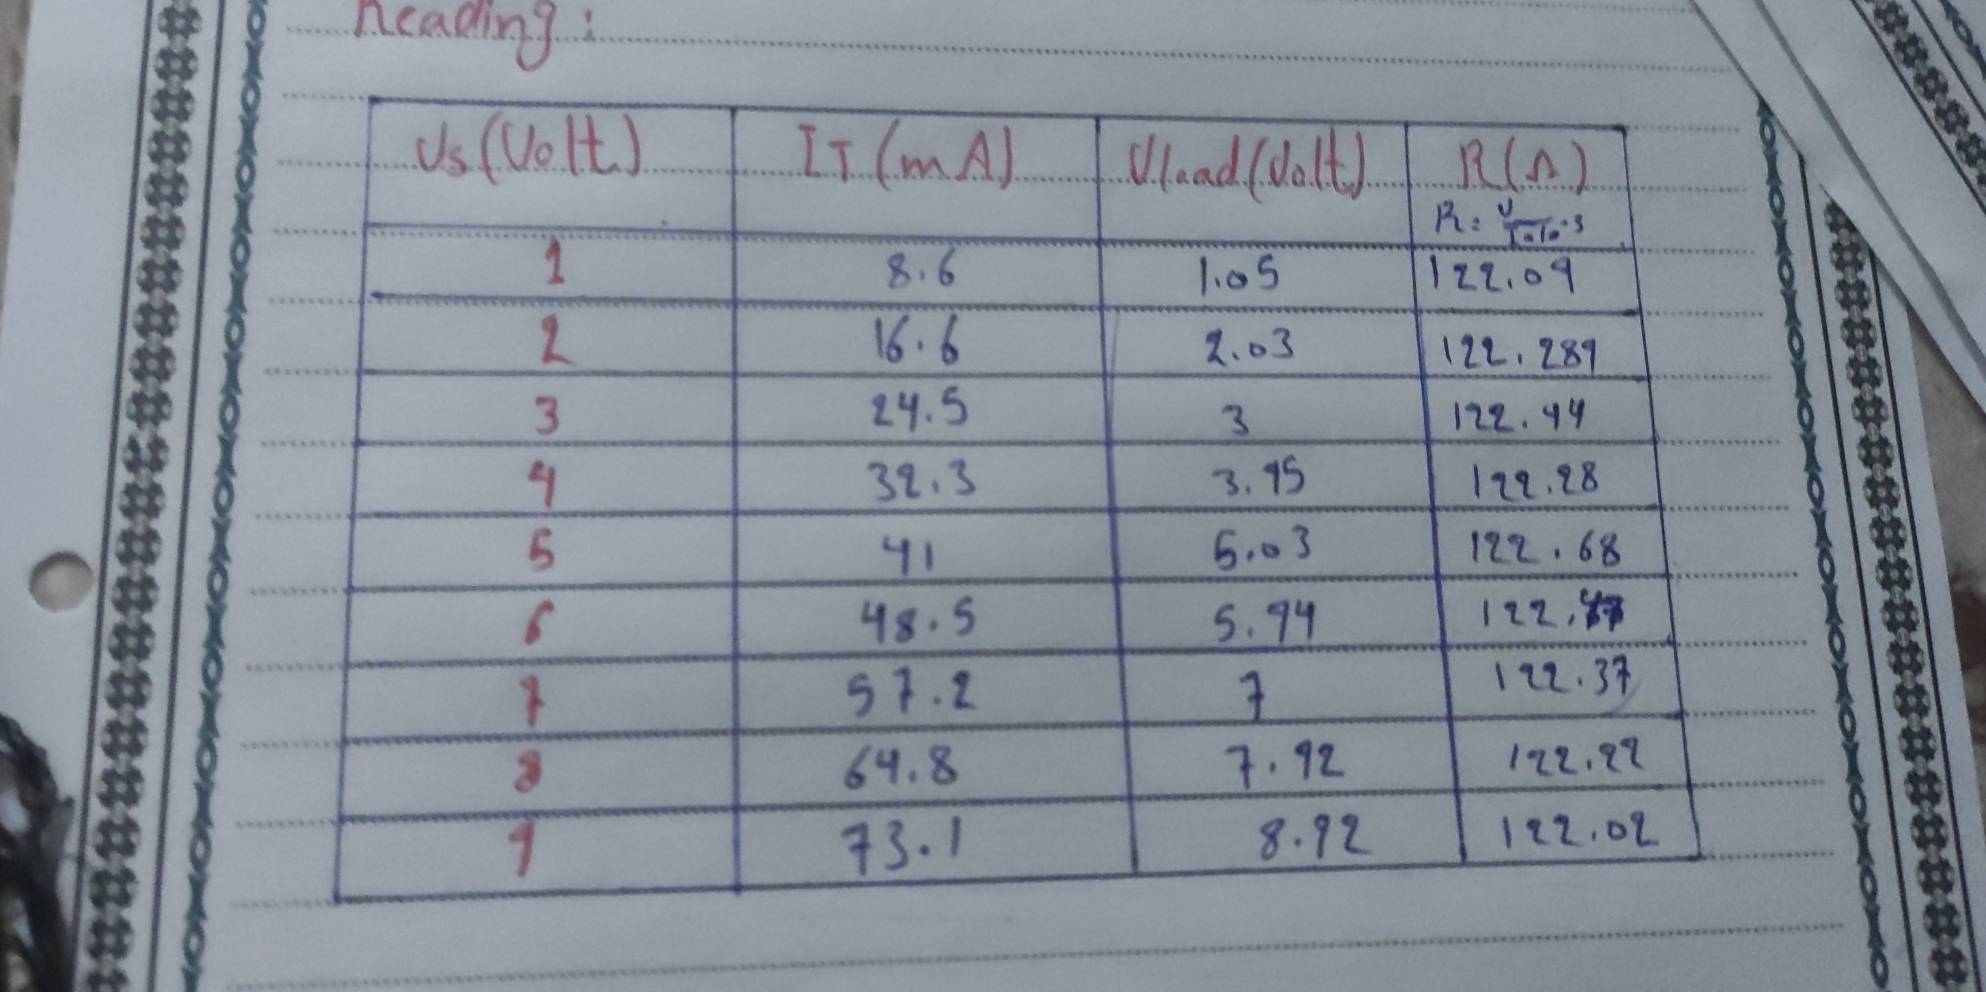 Reading:
Vs (Volt) IT (mA) Vload (Volt) R(Ω)
R = V / I*10^-3
1 8.6 1.05 122.09
2 16.6 2.03 122.289
3 24.5 3 122.44
4 32.3 3.95 122.28
5 41 5.03 122.68
6 48.5 5.94
7 57.2 7 122.37
8 64.8 7.92 122.22
9 73.1 8.92 122.02